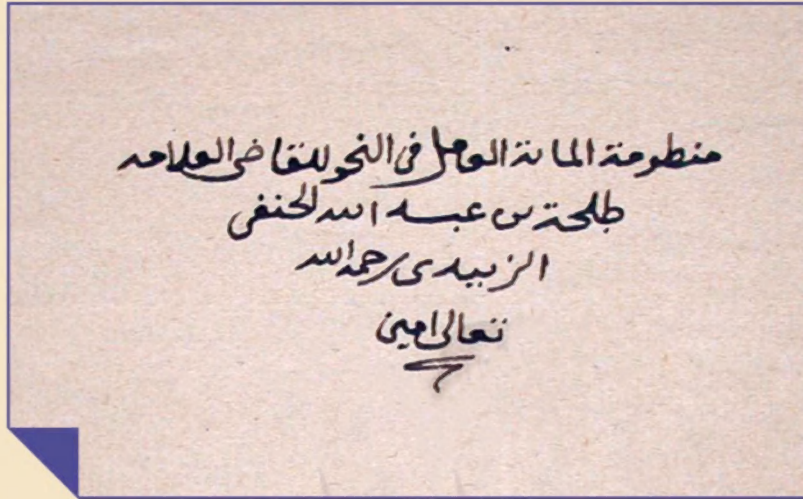 منظومة المائة العامل في النحو للقاضى العلامه
طلحة بن عبد الله الحنفى
الزبيدى رحمه الله
تعالى امين